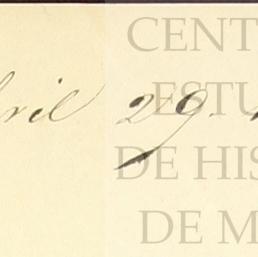 CENT
ESTU
bril 29
DE HIS
DE M